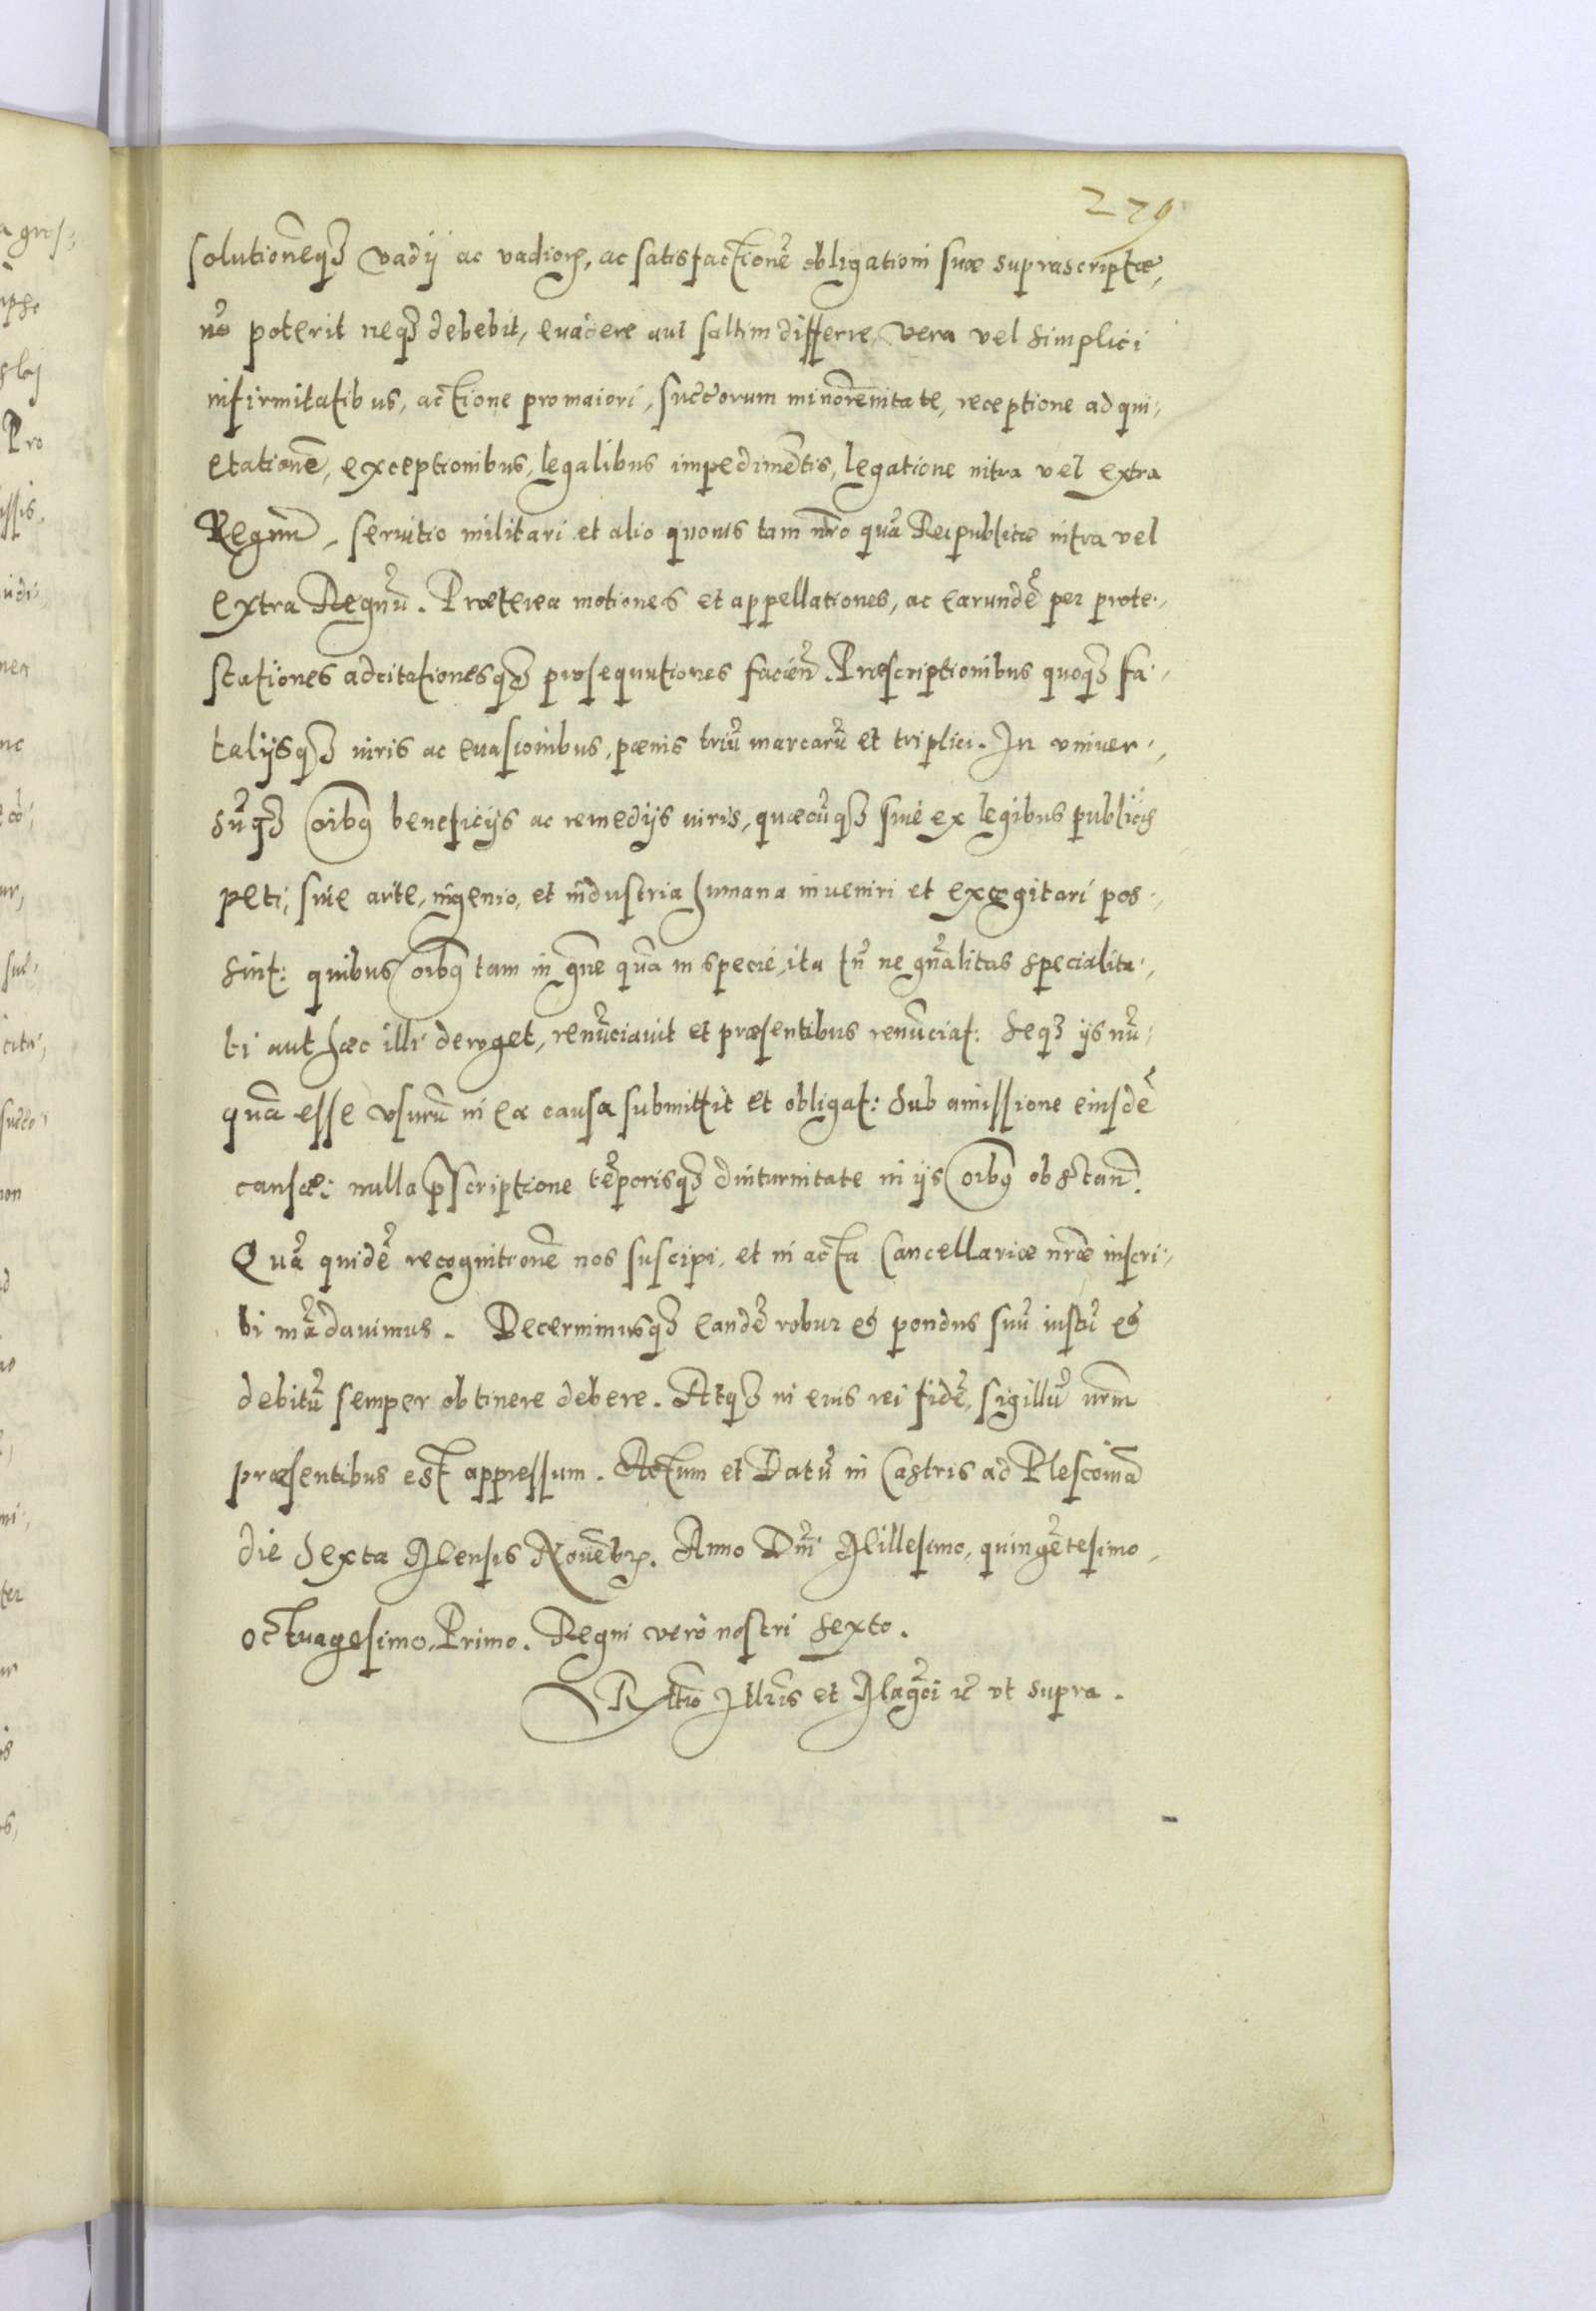 229
solutionēqꝫ vadij ac vadioꝝ, ac satisfactionē obligationi suæ suprascriptæ,
nō poterit neqꝫ debebit, euadere aut saltim differre, vera vel simplici
infirmitatibus, actione pro maiori, succorum minorēnitate, receptione ad qui-
etationē, exceptionibus, legalibus impedimētis, legatione intra vel extra
Regnū, seruitio militari et alio quouis tam nr̄o quā Reipublicæ intra vel
extra Regnū. Præterea motiones et appellationes, ac earundē per prote-
stationes adcitationesqꝫ prosequutiones facien̄. Præscriptionibus quoqꝫ fa-
talijsqꝫ iuris ac euasionibus, pœnis triū marcarū et triplici. In vniuer-
sūqꝫ oībꝰ beneficijs ac remedijs iuris, quæcūqꝫ siue ex legibus publicis
peti, siue arte, ingenio, et industria humana inueniri et excogitari pos-
sint: quibus oībꝰ tam in gn̄e quā in specie, ita tn̄ ne gn̄alitas specialita-
ti aut hæc illi deroget, renūciauit et præsentibus renūciat: seqꝫ ijs nū-
quā esse vsurū in ea causa submittit et obligat: sub amissione eiusdē
causæ: nulla p̄scriptione tēporisqꝫ diuturnitate in ijs oībꝰ obstan̄.
Quā quidē recognitionē nos suscipi, et in acta Cancellariæ nr̄æ inscri-
bi mādauimus. Decernimusqꝫ eandē robur et pondus suū iustū et
debitū semper obtinere debere. Atqꝫ in eius rei fidē, sigillū nr̄m
præsentibus est appressum. Actum et Datū in Castris ad Plescouiā
die sexta Mensis Nouēbꝝ. Anno Dn̄i Millesimo, quingētesimo,
octuagesimo, Primo. Regni vero nostri sexto.
Rl̄tio Ill̄ris et Magci ꝛc̄ vt supra.